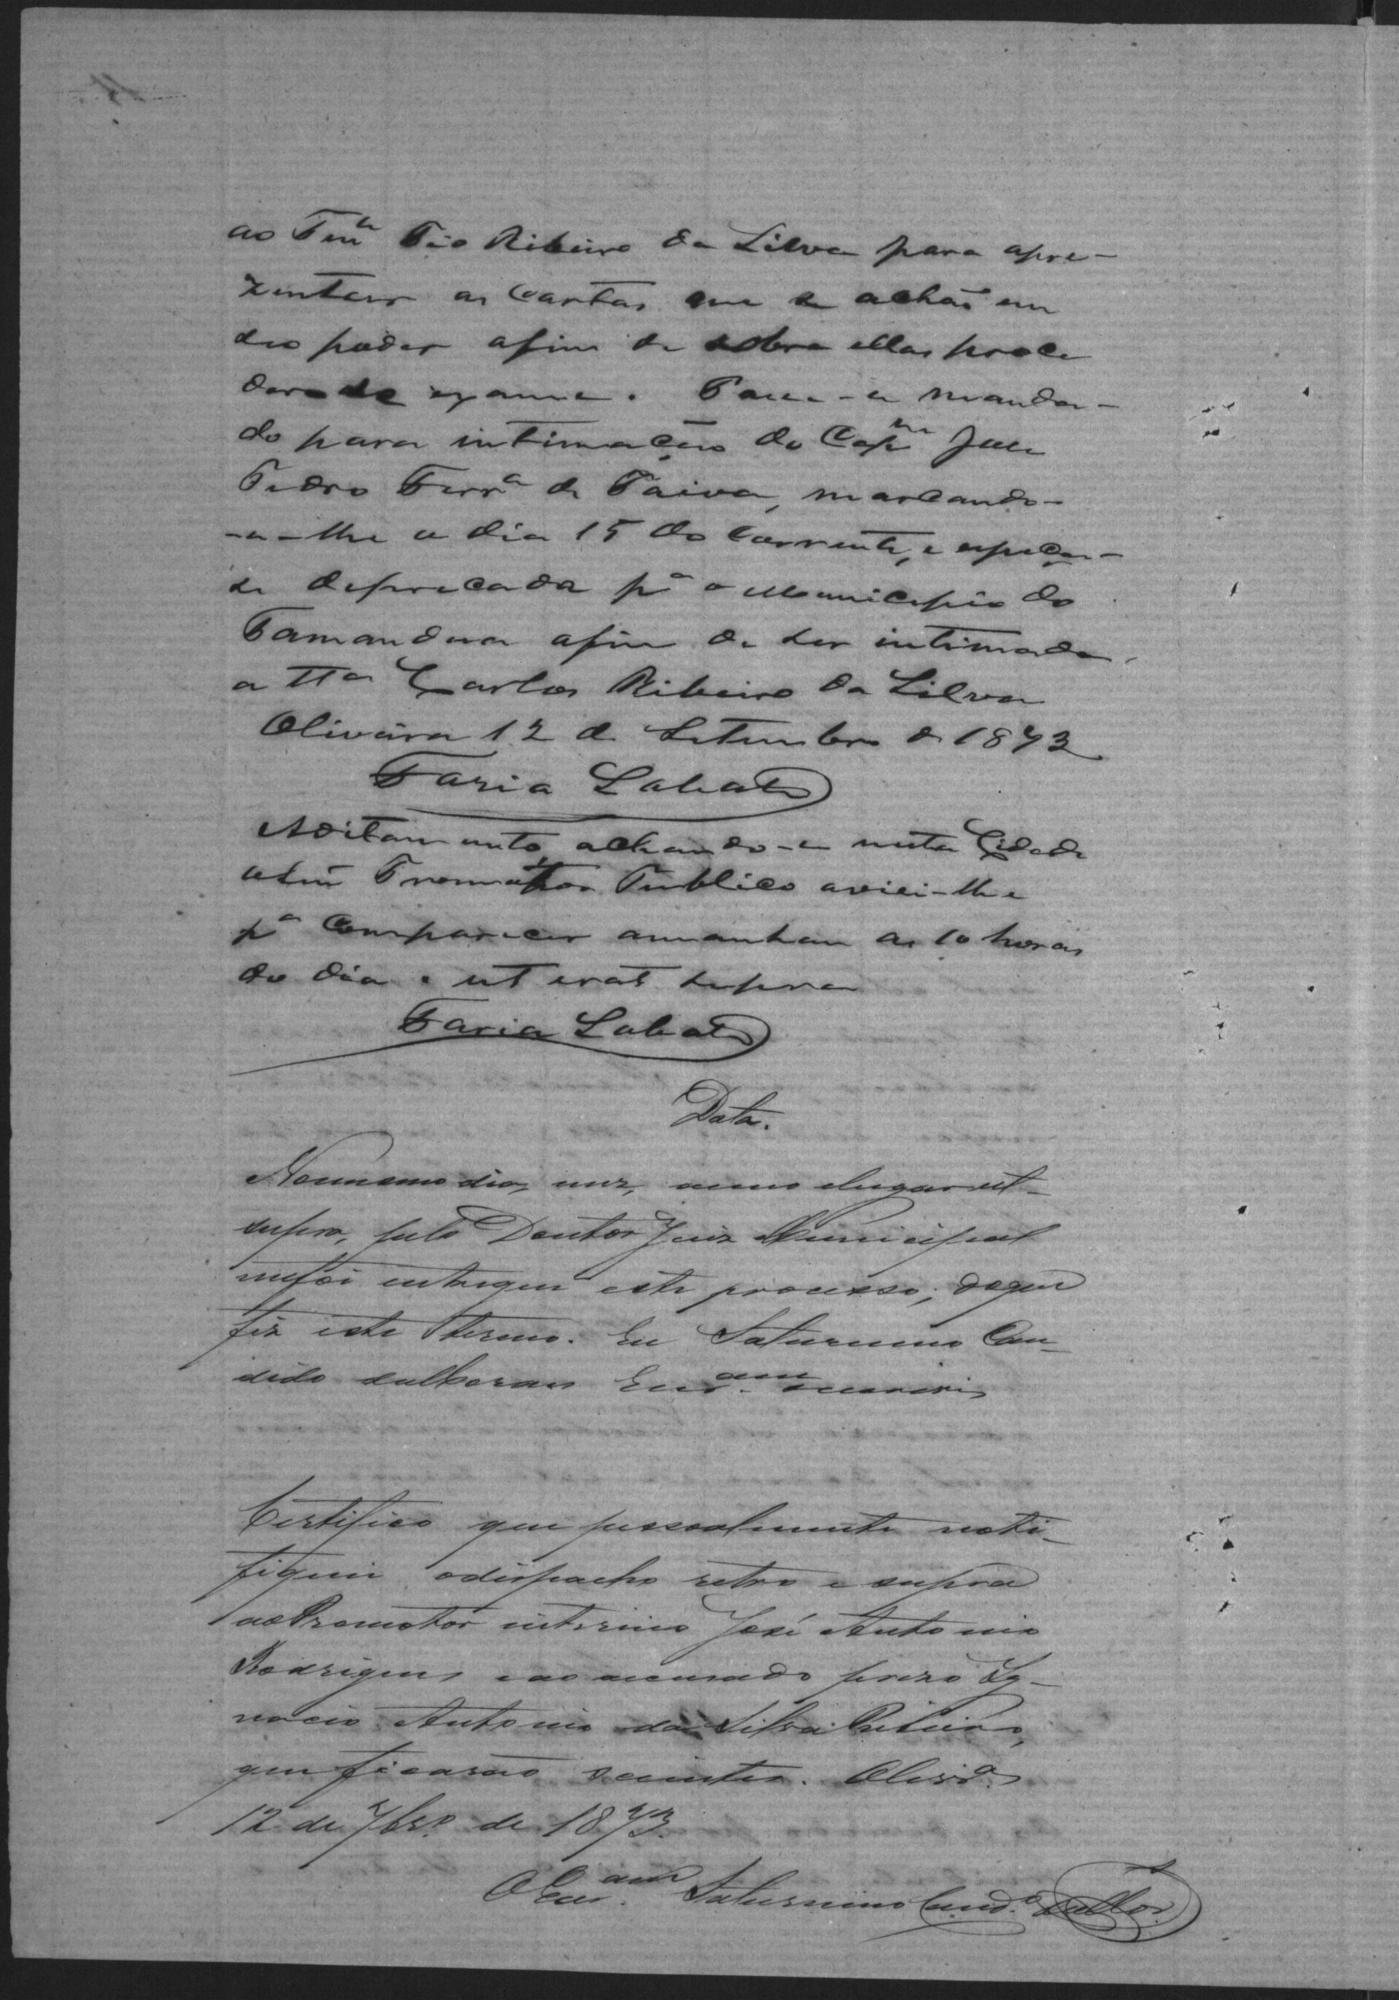 ao Ten.te Pio Ribeiro da Silva para apre-
zentar as Cartas que se achão em
seo poder afim de sobre ellas proce
dera se exame. Passe-se manda-
do para intimação do Cap.m José
Pedro Ferr.a de Paiva, marcando-
-se-lhe o dia 15 do corrente, e espeça-
se deprecada p.a o Municipio do
Tamandua afim de ser intimada
a tt.a Carlos Ribeiro da Silva
Oliveira 12 de Setembro de 1873
Faria Lobato
Aditamento, achando-se nesta Cidade
o Promotor Publico avizei-lhe
p.a comparecer amanhan as 10 horas
do dia. ut erat supra
Faria Lobato
Data.
No mesmo dia, mez, anno e lugar ut-
supra, pelo Doutor Juiz Municipal
me foi entregue este processo; do que
fiz este termo. Eu Saturnino Can-
dido Escr.am escrevi
Certifico que pessoalmente noti-
fiquei o dispacho retro e supra
ao Promotor interino José Antonio
Rodrigues e ao accusado prezo Ig-
nacio Antonio da Silva Ribeiro,
que ficarão scientes. Olivr.a
12 de 7br.o de 1873.
O Escr.am Saturnino Cand.o